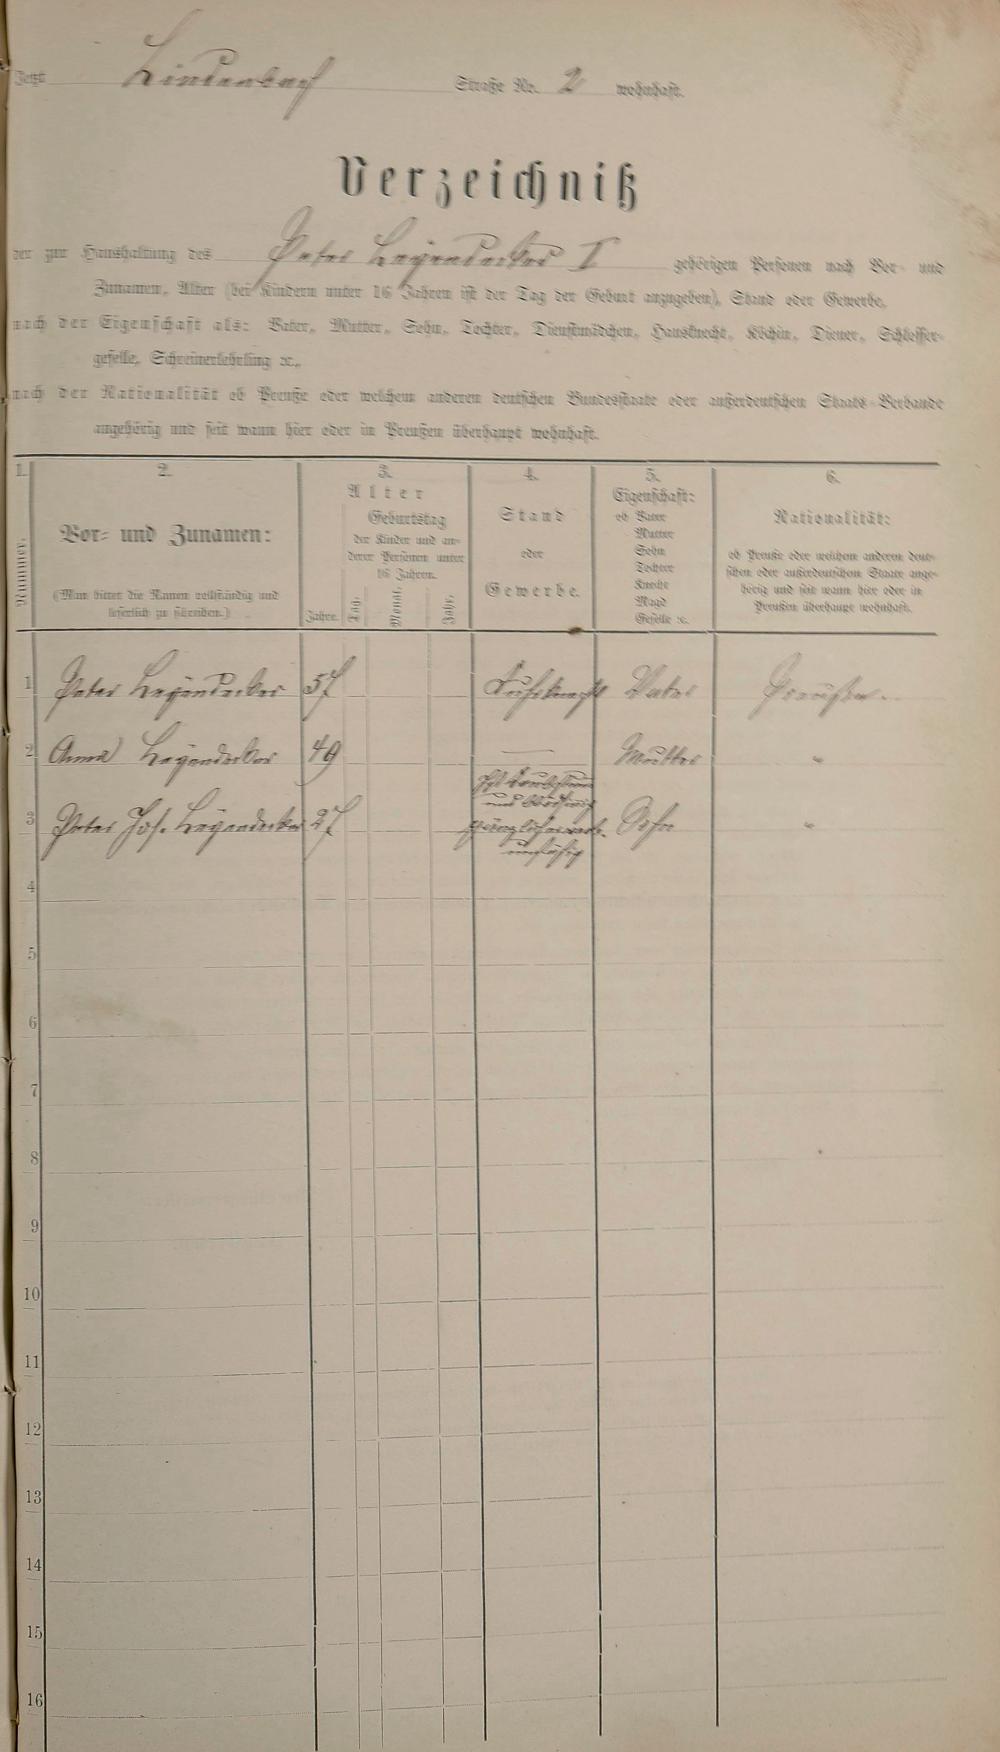 Jetzt Lindenbach Straße No. 2 wohnhaft.
Verzeichniß
der zur Haushaltung des Peter Leÿendecker I gehörigen Personen nach Vor- und
Zunamen, Alter (bei Kindern unter 16 Jahren ist der Tag der Geburt anzugeben), Stand oder Gewerbe,
nach der Eigenschaft als: Vater, Mutter, Sohn, Tochter, Dienstmädchen, Hausknecht, Köchin, Diener, Schlosser-
geselle, Schreinerlehrling ꝛc.,
nach der Nationalität ob Preuße oder welchem anderen deutschen Bundesstaate oder außerdeutschen Staats-Verbande
angehörig und seit wann hier oder in Preußen überhaupt wohnhaft.
1. 2. 3. 4. 5. 6.
Nummer.
Vor- und Zunamen:
(Man bittet die Namen vollständig und
leserlich zu schreiben.)
Alter
Geburtstag
der Kinder und an-
derer Personen unter
16 Jahren.
Jahre. Tag. Monat. Jahr.
Stand
oder
Gewerbe.
Eigenschaft:
ob Vater
Mutter
Sohn
Tochter
Knecht
Magd
Geselle ꝛc.
Nationalität:
ob Preuße oder welchem anderen deut-
schen oder außerdeutschen Staate ange-
hörig und seit wann hier oder in
Preußen überhaupt wohnhaft.
1 Peter Leÿendecker 57 Fuhrknecht Vater Preußen.
2 Anna Leÿendecker 49 — Mutter "
3 Peter Jos. Leÿendecker 27 ist taubstumm
und
gänzlich erwerb-
unfähig Sohn "
4
5
6
7
8
9
10
11
12
13
14
15
16